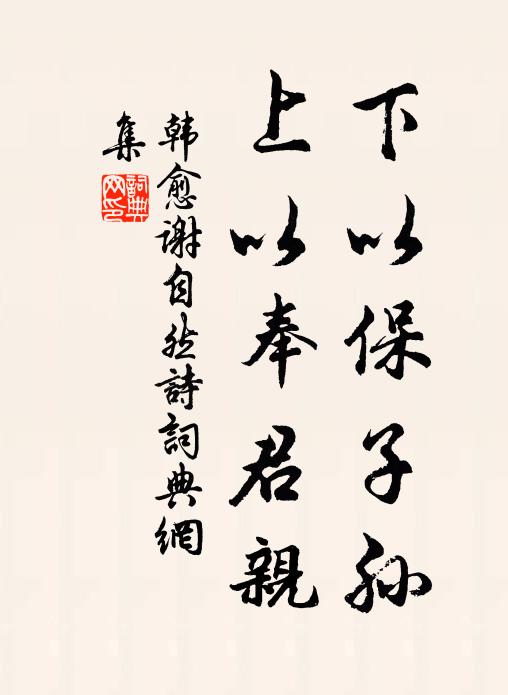 下以保子孫
上以奉君親
韓愈謝自然詩詞典網
集
詞典網印